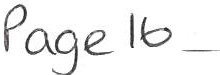 Page 16_